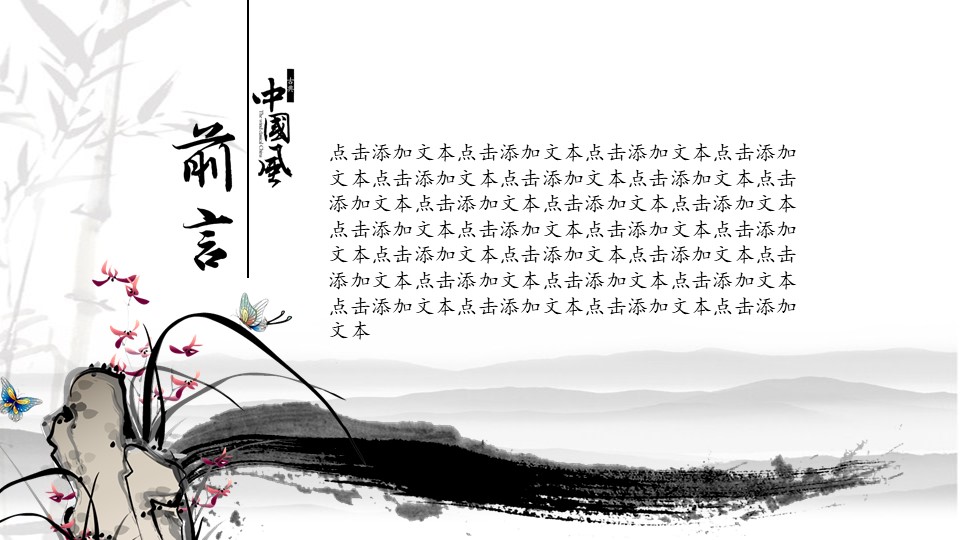 前言
古典
中國風
点击添加文本点击添加文本点击添加文本点击添加
文本点击添加文本点击添加文本点击添加文本点击
添加文本点击添加文本点击添加文本点击添加文本
点击添加文本点击添加文本点击添加文本点击添加
文本点击添加文本点击添加文本点击添加文本点击
添加文本点击添加文本点击添加文本点击添加文本
点击添加文本点击添加文本点击添加文本点击添加
文本